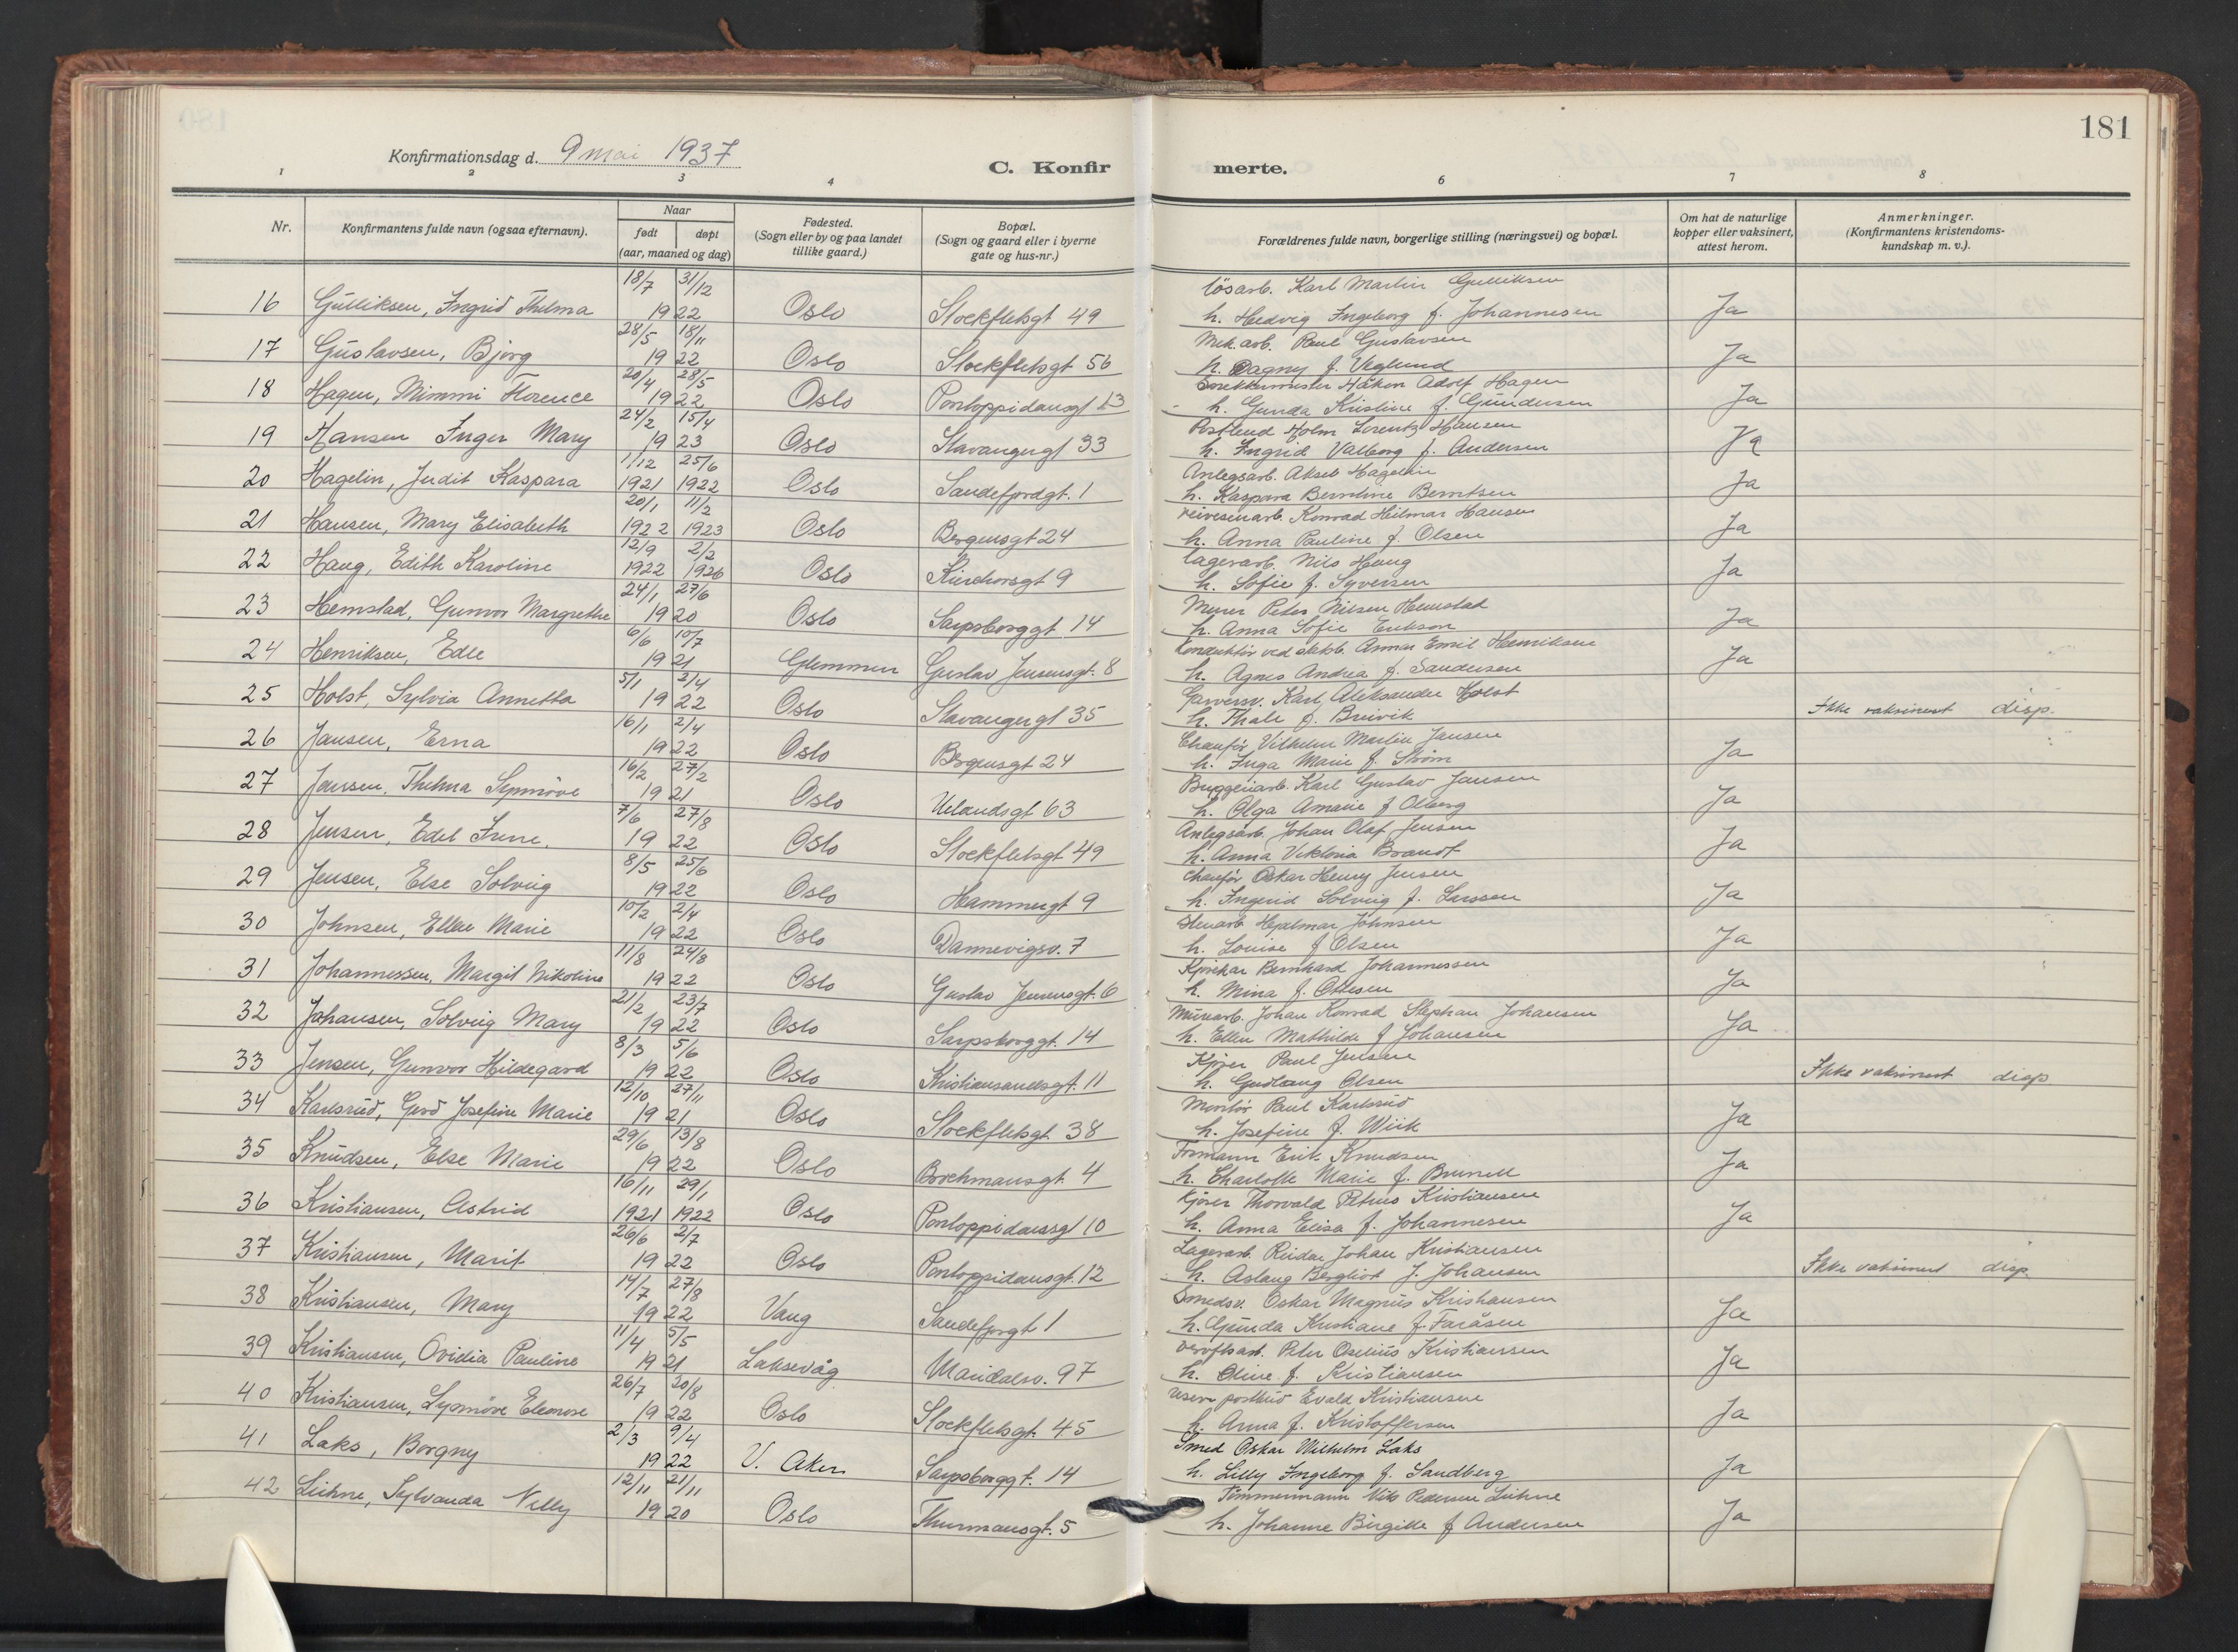 181
Konfirmationsdag d. 9 mai 1937
C. Konfir merte.
1 2 3 4 6 7 8
Nr.
Konfirmantens fulde navn (ogsaa efternavn).
Naar
født døpt
(aar, maaned og dag)
Fødested.
(Sogn eller by og paa landet
tillike gaard.)
Bopæl.
(Sogn og gaard eller i byerne
gate og hus-nr.)
Forældrenes fulde navn, borgerlige stilling (næringsvei) og bopæl.
Om hat de naturlige
kopper eller vaksinert,
attest herom.
Anmerkninger.
(Konfirmantens kristendoms-
kundskap m. v.).
18/7 31/12 løsarb. Karl Martin Gulliksen
16 Gulliksen, Ingrid Thelma 1922 Oslo Stockfletsgt 49 h. Hedvig Ingeborg f. Johannesen Ja
28/5 18/11 Mek. arb. Paul Gustavsen
17 Gustavsen, Bjørg 1922 Oslo Stockfletsgt 56 h. Dagny f. Veglund Ja
20/4 28/5 Snekkermester Håkon Adolf Hagen
18 Hagen, Mimmi Florence 1922 Oslo Pontoppidansgt 13 h. Gunda Kristine f. Gundersen Ja
24/2 15/4 Holm Lorentz Hansen
19 Hansen Inger Mary 1923 Oslo Stavangergt 33 h. Ingrid Valborg f. Andersen Ja
1/12 25/6 Anlegsarb. Aksel Hagelin
20 Hagelin, Judit Kaspara 1921 1922 Oslo Sandefjordgt. 1 h. Kaspara Berntine Berntsen Ja
20/1 11/2 veivesenarb. Konrad Heilmar Hansen
21 Hansen, Mary Elisabeth 1922 1923 Oslo Bergensgt 24 h. Anna Pauline f. Olsen Ja
12/9 2/2 lagerarb. Nils Haug
22 Haug, Edith Karoline 1922 1926 Oslo 9 h. Sofie f. Syversen Ja
24/1 27/6 Murer Peter Nilsen Hemstad
23 Hemstad, Gunvor Margrethe 1920 Oslo Sarpsborggt 14 h. Anna Sofie Erikson Ja
6/6 10/7 Konduktør ved Annar Emil Henriksen
24 Henriksen, Edle 1921 Glemmen Gustav Jensensgt. 8 h. Agnes Andrea f. Sandersen Ja
5/1 2/4 Garversv. Karl Aleksander Holst
25 Holst, Sylvia Annetta 1922 Oslo Stavangergt 35 h. Thale f. Breivik Ikke vaksinert disp.
16/1 2/4 Chaufør Vilhelm Martin Jansen
26 Jansen, Erna 1922 Oslo Bergensgt 24 h. Inga Marie f. Strøm Ja
16/2 27/2 Bryggeriarb. Karl Gustav Jansen
27 Janssen, Thelma Synnøve 1921 Oslo Uelandsgt 63 h. Olga Amarie f Olberg Ja
7/6 27/8 Anlegsarb. Johan Olaf Jensen
28 Jensen, Edel Irene. 1922 Oslo Stockfletsgt 49 h. Anna Viktoria Brandt Ja
8/5 25/6 Chaufør Oskar Henry Jensen
29 Jensen, Else Solveig 1922 Oslo Hammergt 9 h. Ingrid Solveig f. Larssen Ja
10/2 2/4 Stenarb. Hjalmar Johnsen
30 Johnsen, Ellen Marie 1922 Oslo Dannevigsv. 7 h. Louise f Olsen Ja
11/8 24/8 Kjørekar Bernhard Johannessen
31 Johannessen, Margit Nikoline 1922 Oslo Gustav Jensensgt. 6 h. Mina f. Ottesen Ja
21/2 23/7 Murarb. Johan Konrad Stephan Johansen
32 Johansen, Solveig Mary 1922 Oslo Sarpsborggt. 14 h. Ellen Mathilde f Johansen Ja
8/3 5/6 Kjører Paul Jensen
33 Jensen, Gunvor Hildegard 1922 Oslo Kristiansandsgt. 11 h. Gudlaug Olsen Ikke vaksinert disp
12/10 27/11 Montør Paul Karlsrud
34 Karlsrud, Gerd Josefine Marie 1921 Oslo Stockfletsgt. 38 h. Josefine f. Wiik Ja
29/6 13/8 Formann Erik Knudsen
35 Knudsen, Else Marie 1922 Oslo Brochmansgt. 4 h. Charlotte Marie f. Brunell Ja
16/11 29/1 Kjører Thorvald Petrus Kristiansen
36 Kristiansen, Astrid 1921 1922 Oslo Pontoppidansgt 10 h. Anna Elisa f. Johannesen Ja
26/6 2/7 Lagerarb. Reidar Johan Kristiansen
37 Kristiansen, Marit 1922 Oslo Pontoppidansgt. 12 h. Aslaug Bergliot f. Johansen Ikke vaksinert disp.
14/7 27/8 Smedsv. Oskar Magnus Kristiansen
38 Kristiansen, Mary 1922 Vang Sandefjorgt 1 h. Gunda Kristiane f. Faråsen Ja
11/4 5/5 verftsarb. Peter Oselius Kristiansen
39 Kristiansen, Ovidia Pauline 1921 Laksevåg Maridalsv. 97 h. Oline f. Kristiansen Ja
26/7 20/8 reserv postbud Evald Kristiansen
40 Kristiansen, Synnøve Eleonore 1922 Oslo Stockfletsgt. 45 h. Anna f. Kristoffersen Ja
2/3 9/4 Smed Oskar Wilhelm Laks
41 Laks, Borgny 1922 V. Aker Sarpsborggt. 14 h. Lilly Ingeborg f. Sandberg Ja
12/11 21/11 Tømmermann Nils Pedersen Liehne
42 Liehne, Sylvanda Nelly 1920 Oslo Thurmansgt. 5 h. Johanne Birgitte f Andersen Ja